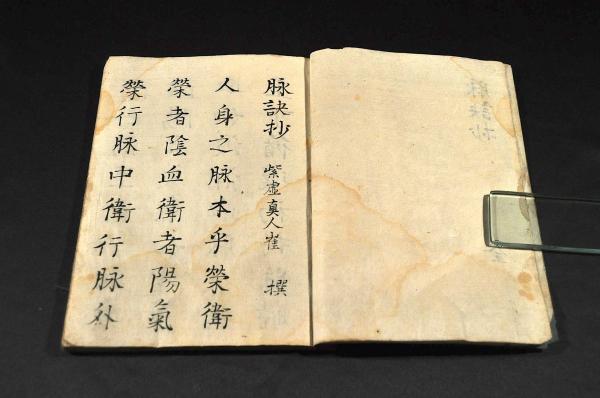 脉訣抄 紫虛真人崔 撰
人身之脉本乎榮衛
榮者陰血衛者陽氣
榮行脉中衛行脉外